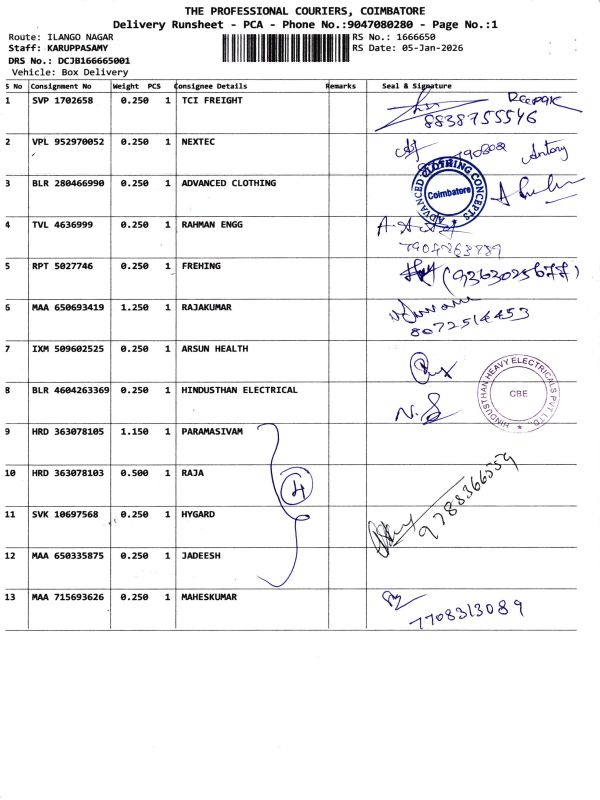 THE PROFESSIONAL COURIERS, COIMBATORE
Delivery Runsheet - PCA - Phone No.:9047080280 - Page No.:1
Route: ILANGO NAGAR RS No.: 1666650
Staff: KARUPPASAMY RS Date: 05-Jan-2026
DRS No.: DCJB166665001
Vehicle: Box Delivery
S No Consignment No Weight PCS Consignee Details Remarks Seal & Signature
1 SVP 1702658 0.250 1 TCI FREIGHT Deepak
8838755546
2 VPL 952970052 0.250 1 NEXTEC Antony
3 BLR 280466990 0.250 1 ADVANCED CLOTHING ADVANCED CLOTHING CONCEPTS Coimbatore
4 TVL 4636999 0.250 1 RAHMAN ENGG
5 RPT 5027746 0.250 1 FREHING (9363025677)
6 MAA 650693419 1.250 1 RAJAKUMAR
8072514453
7 IXM 509602525 0.250 1 ARSUN HEALTH
8 BLR 4604263369 0.250 1 HINDUSTHAN ELECTRICAL HINDUSTHAN HEAVY ELECTRICALS PVT LTD. CBE
9 HRD 363078105 1.150 1 PARAMASIVAM
10 HRD 363078103 0.500 1 RAJA 4
11 SVK 10697568 0.250 1 HYGARD 9788366559
12 MAA 650335875 0.250 1 JADEESH
13 MAA 715693626 0.250 1 MAHESKUMAR
7708313089